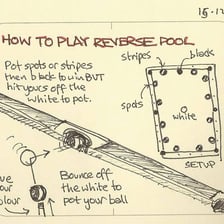 15-12
HOW TO PLAY REVERSE POOL
Pot spots or stripes
then black to win BUT
hit yours off the
white to pot.
stripes
black
spots
white
SETUP
our
olour
Bounce off
the white to
pot your ball